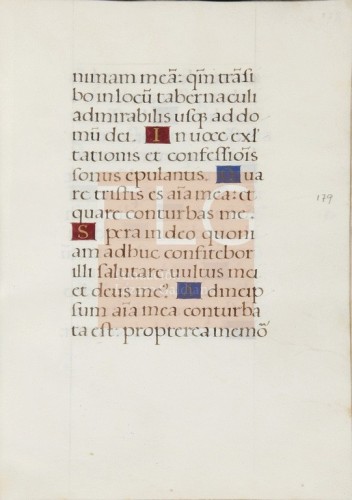 nimam meā: qm̄ trāsi
bo in locū tabernaculi
admirabilis usq; ad do
mū dei. In uoce exl
tationis et confessiōis
sonus epulantis. Qua
re tristis es aīa mea: et
quare conturbas me.
Spera in deo quoni
am adhuc confitebor
illi salutare uultus mei
et deus me⁹. Ad meip
sum aīa mea conturba
ta est: propterea memō
179
FLG